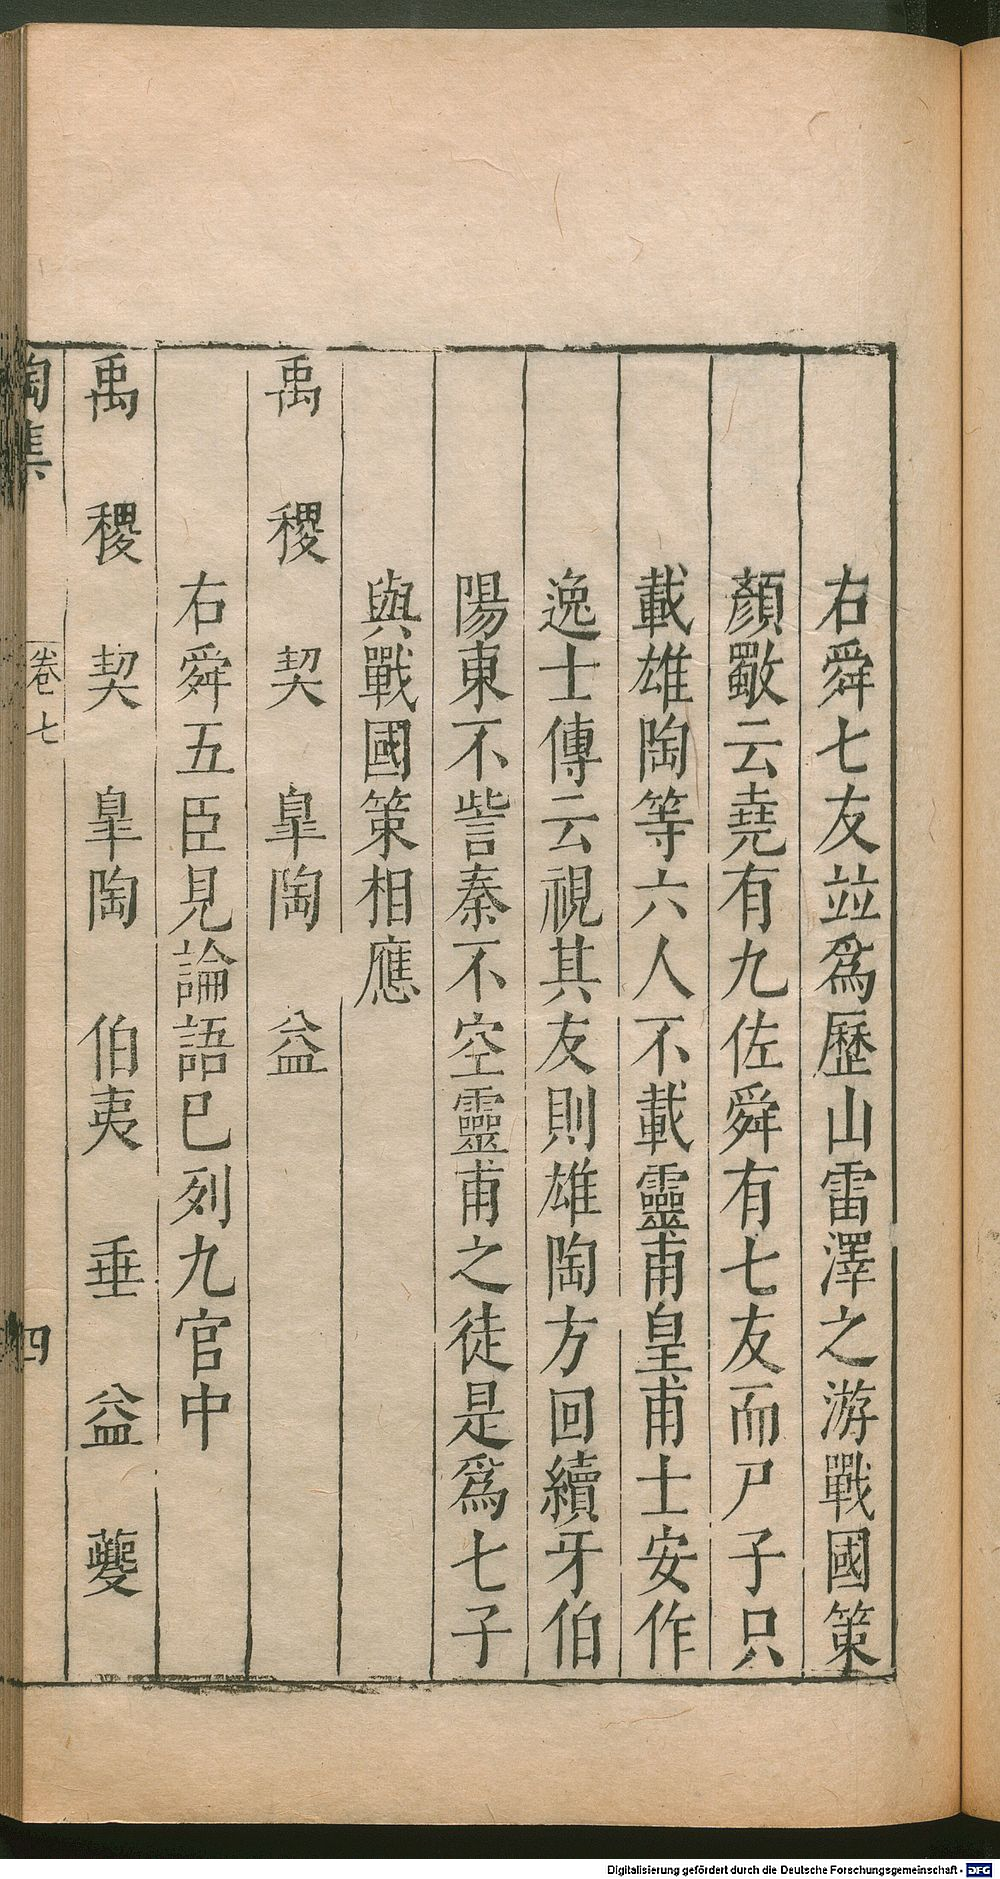 右舜七友竝爲歷山雷澤之游戰國策
顏歜云堯有九佐舜有七友而尸子只
載雄陶等六人不載靈甫皇甫士安作
逸士傳云視其友則雄陶方回續牙伯
陽東不訾秦不空靈甫之徒是爲七子
與戰國策相應
禹 稷 契 臯陶 益
右舜五臣見論語巳列九官中
禹 稷 契 臯陶 伯夷 垂 益 夔
陶集 卷七 四
Digitalisierung gefördert durch die Deutsche Forschungsgemeinschaft - DFG